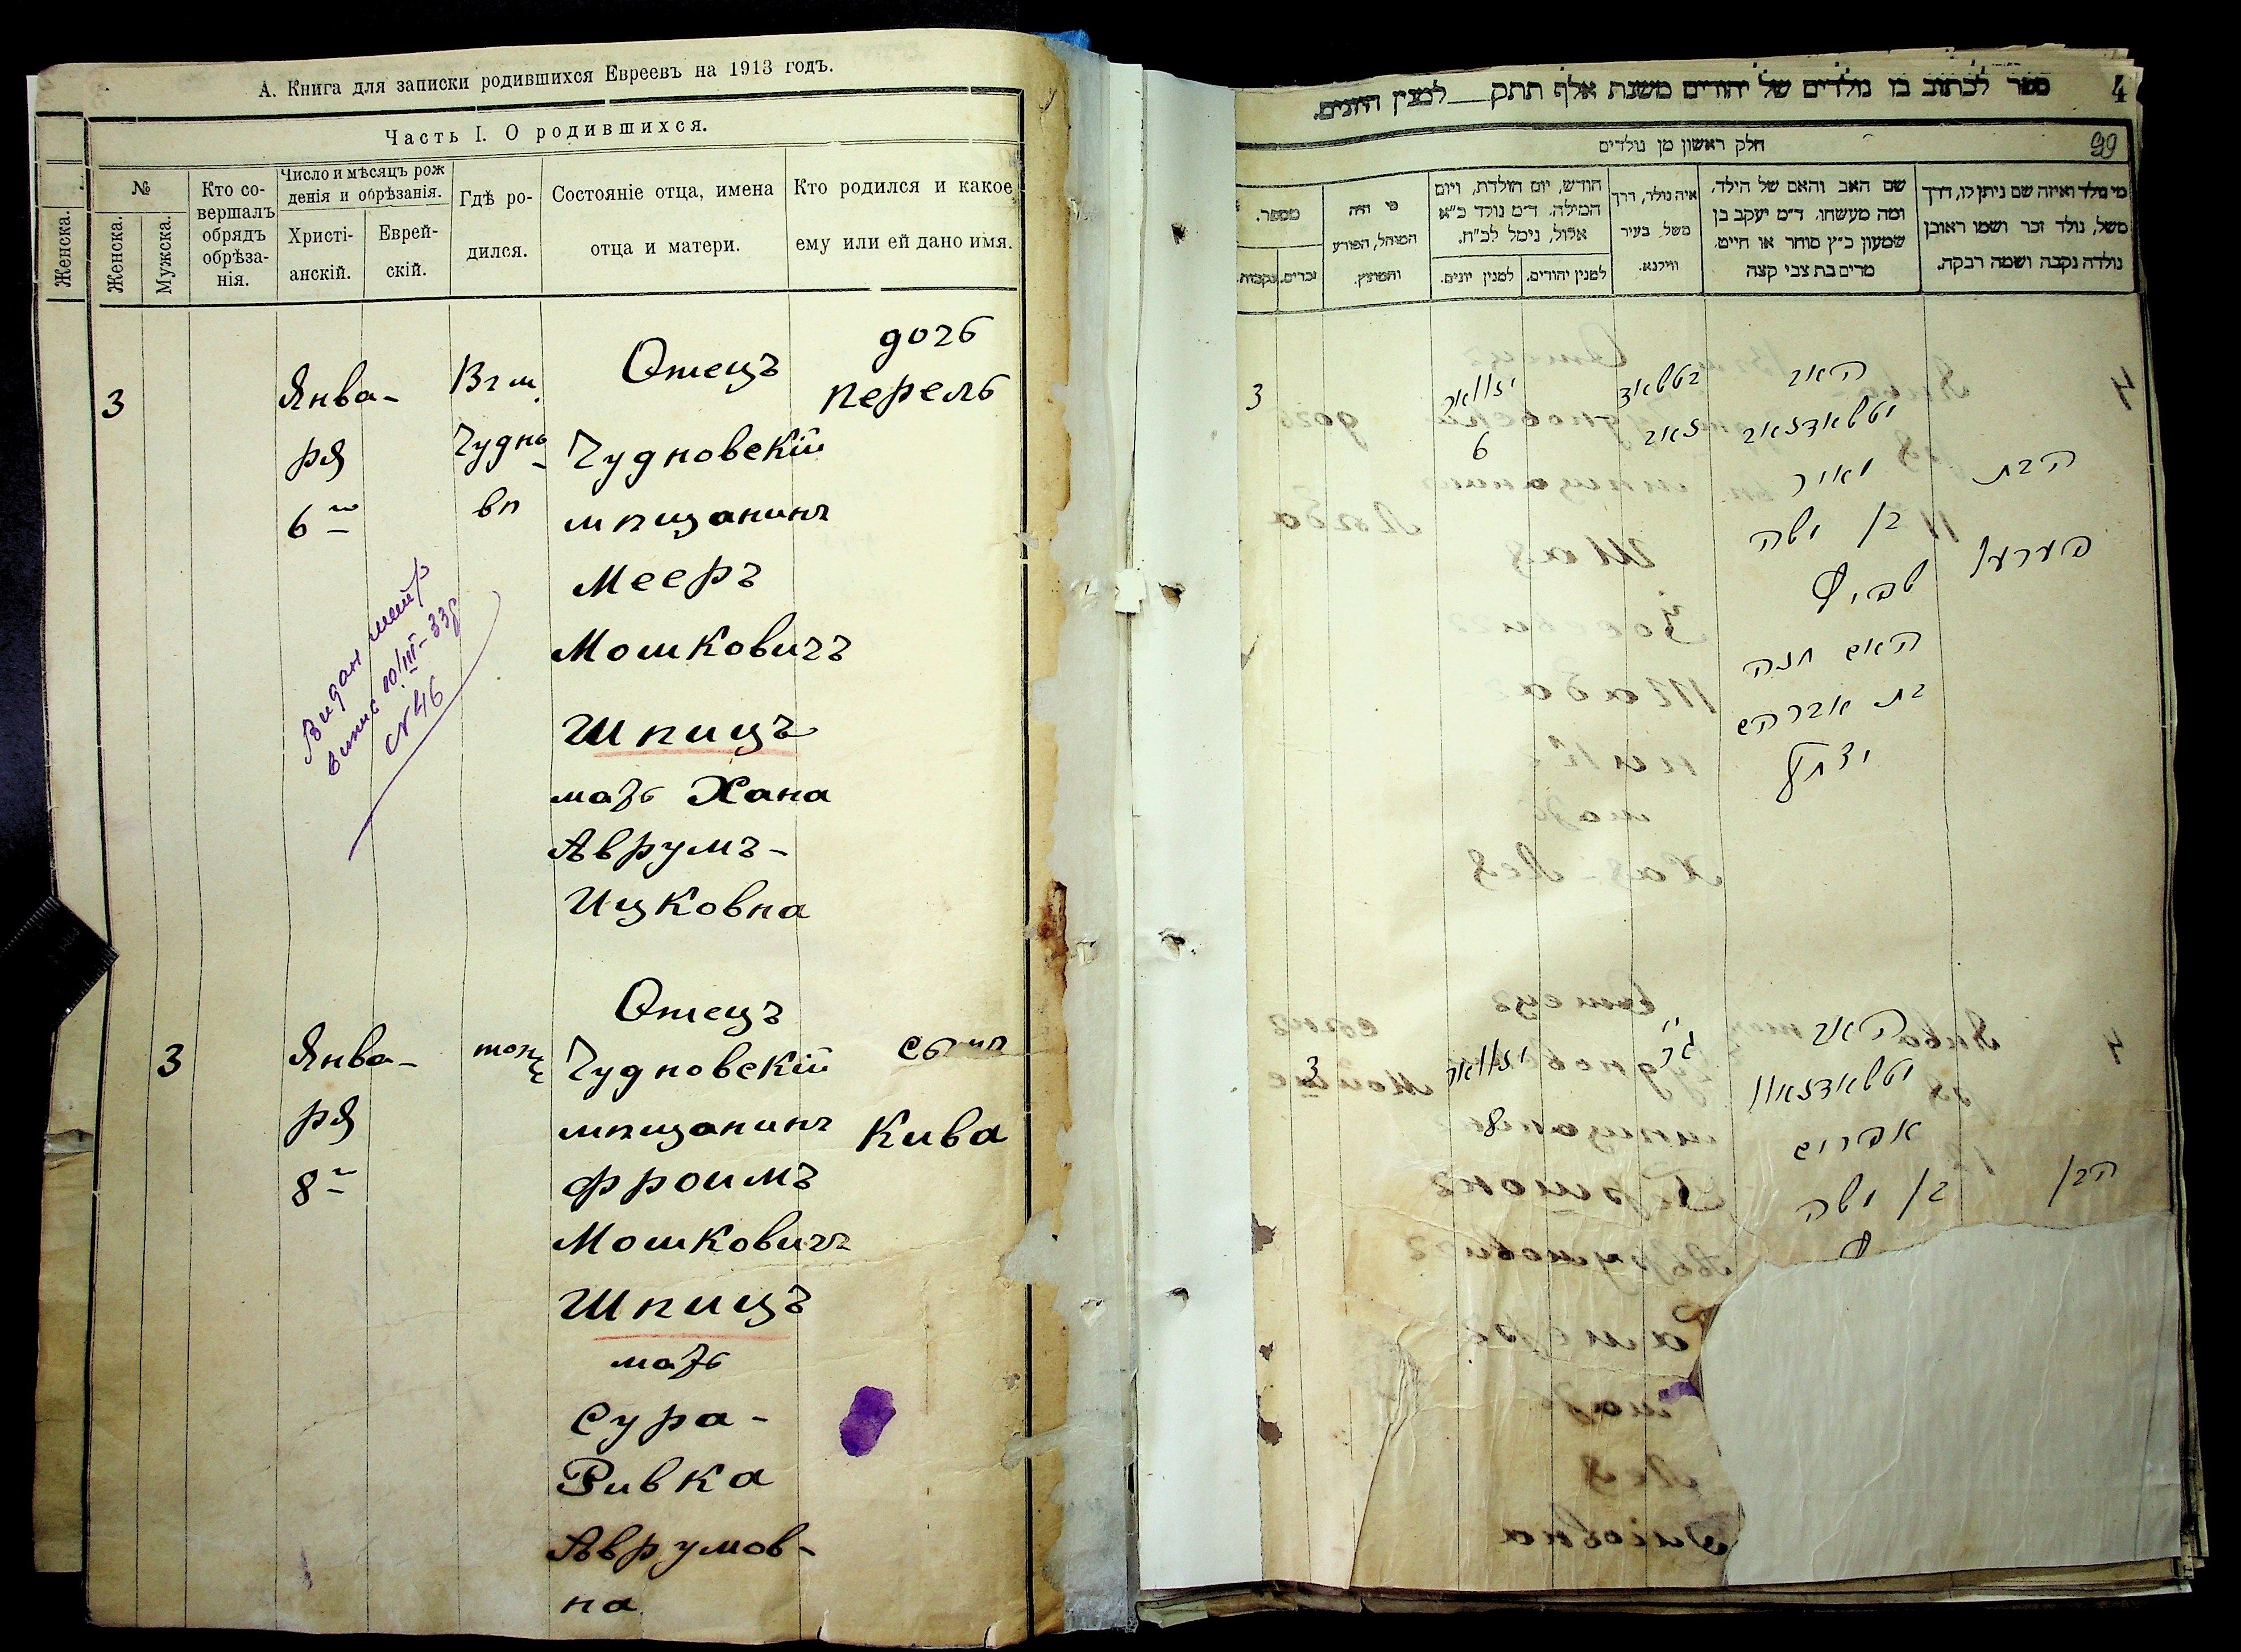 А. Книга для записки родившихся Евреевъ на 1913 годъ.
Часть I. О родившихся.
Женска.
№
Женска.
Мужска.
Кто со-
вершалъ
обрядъ
обрѣза-
нія.
Число и мѣсяцъ рож
денія и обрѣзанія.
Христі-
анскій.
Еврей-
скій.
Гдѣ ро-
дился.
Состояніе отца, имена
отца и матери.
Кто родился и какое
ему или ей дано имя.
3
Янва-
ря
6го
Вг м.
Чудно
вп
Отецъ
Чудновскій
мпщанинъ
Мееръ
Мошковичъ
Шпицъ
мать Хана
Аврумъ-
Ицковна
дочь
перель
№ 46
3
Янва-
ря
8го
Отецъ
Чудновскій
мпщанинъ
Фроимъ
Мошковичъ
Шпицъ
мать
Сура-
Ривка
Аврумов-
на
сынъ
Кива
4
ספר לכתוב בו נולדים של יהודים משנת אלף תתק למנין היונים.
99
חלק ראשון מן נולדים
מי נולד ואיזה שם ניתן לו, דרך
משל, נולד זכר ושמו ראובן
נולדה נקבה ושמה רבקה.
שם האב והאם של הילד,
ומה מעשהו. ד״מ יעקב בן
שמעון כ״ץ סוחר או חייט.
מרים בת צבי קצה
איה נולד, דרך
משל, בעיר
ווילנא.
חודש, יום הולדת, ויום
המילה. ד״מ נולד כ״א
אלול, נימל לכ״ח.
למנין יהודים.
למנין יונים.
מי היה
המוהל, הפורע
והמוצץ.
מספר.
זכרים.
נקבות.
3
6
האב
מאיר
בן משה
שפיץ
האם חנה
בת אברהם
יצחק
הבת
פערעל
3
8
האב
אפרים
בן משה
הבן